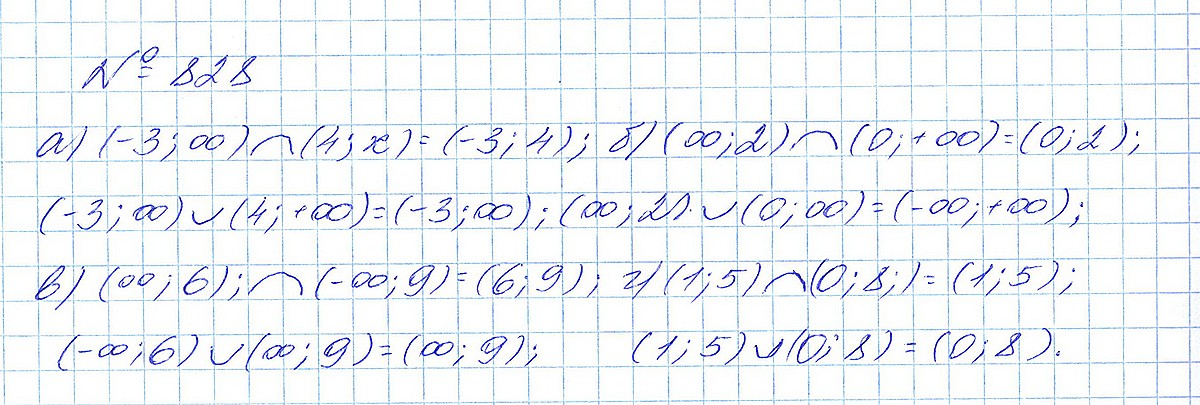 № 828
а) (-3; ∞) ∩ (4; x) = (-3; 4); б) (∞; 2) ∩ (0; +∞) = (0; 2);
(-3; ∞) ∪ (4; +∞) = (-3; ∞); (∞; 2) ∪ (0; ∞) = (-∞; +∞);
в) (∞; 6); ∩ (-∞; 9) = (6; 9); г) (1; 5) ∩ (0; 8;) = (1; 5);
(-∞; 6) ∪ (∞; 9) = (∞; 9); (1; 5) ∪ (0; 8) = (0; 8).